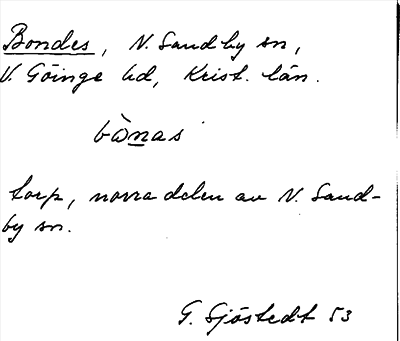 Bondes, N. Sandby sn,
V. Göinge hd, Krist. län.
bònas
torp, norra delen av N. Sand-
by sn.
G. Sjöstedt 53